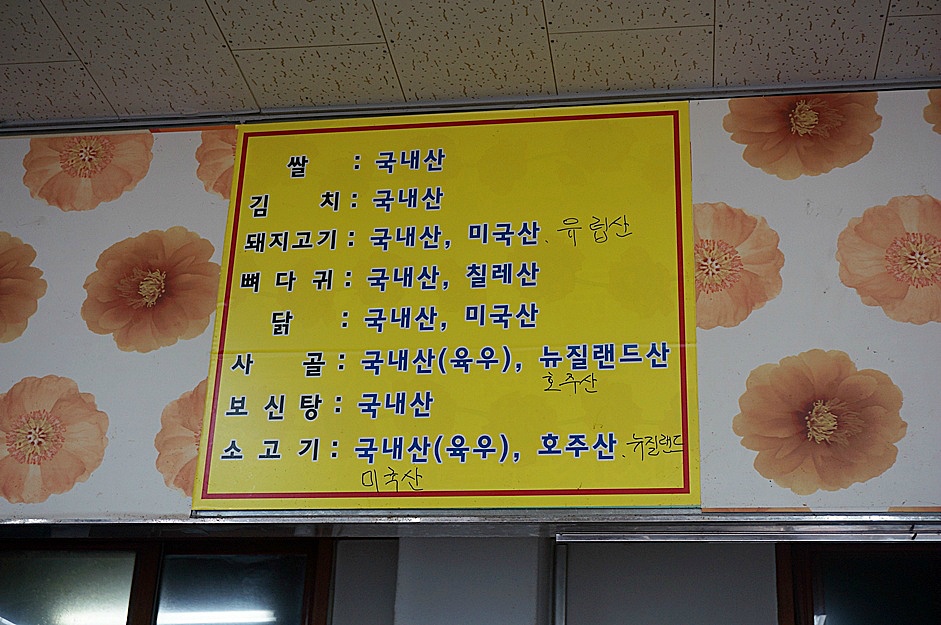 쌀 : 국내산
김 치 : 국내산
돼지고기 : 국내산, 미국산. 유럽산
뼈 다 귀 : 국내산, 칠레산
닭 : 국내산, 미국산
사 골 : 국내산(육우), 뉴질랜드산
호주산
보 신 탕 : 국내산
소 고 기 : 국내산(육우), 호주산. 뉴질랜드
미국산